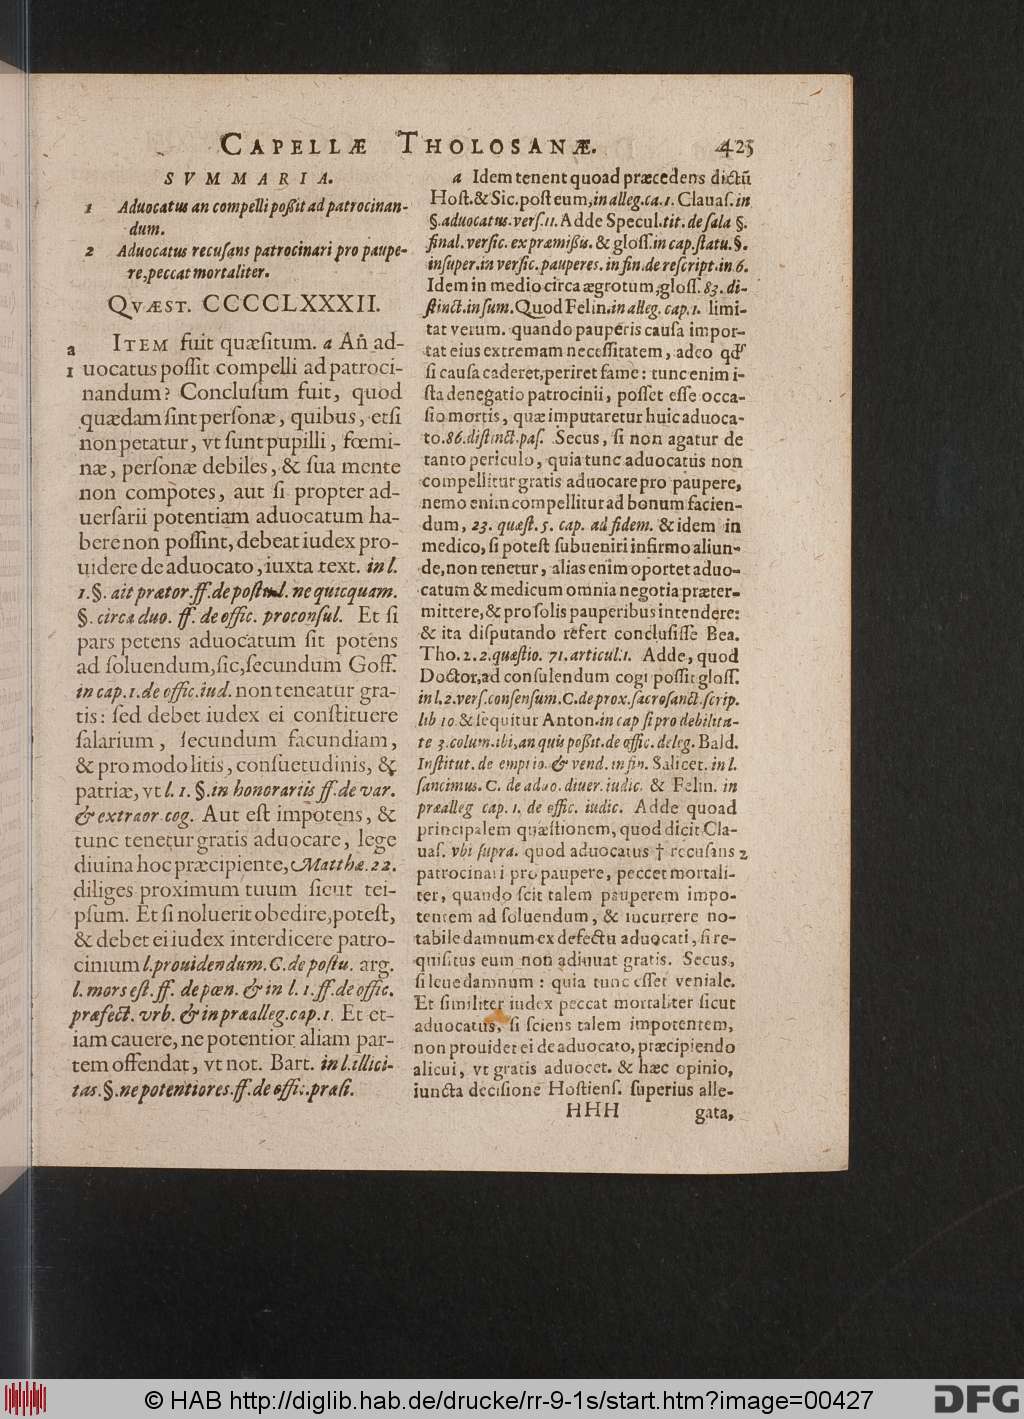 CAPELLÆ THOLOSANÆ. 425
SVMMARIA.
1 Aduocatus an compelli poßit ad patrocinan-
dum.
2 Aduocatus recusans patrocinari pro paupe-
re, peccat mortaliter.
QVÆST. CCCCLXXXII.
a ITEM fuit quæsitum. a Añ ad-
1 uocatus possit compelli ad patroci-
nandum? Conclusum fuit, quod
quædam sint personæ, quibus, etsi
non petatur, vt sunt pupilli, fœmi-
næ, personæ debiles, & sua mente
non compotes, aut si propter ad-
uersarii potentiam aduocatum ha-
bere non possint, debeat iudex pro-
uidere de aduocato, iuxta text. in l.
1. §. ait prætor. ff. de postul. ne quicquam.
§. circa duo. ff. de offic. proconsul. Et si
pars petens aduocatum sit potens
ad soluendum, sic, secundum Goff.
in cap. 1. de offic. iud. non teneatur gra-
tis: sed debet iudex ei constituere
salarium, secundum facundiam,
& pro modo litis, consuetudinis, &
patriæ, vt l. 1. §. in honorariis ff. de var.
& extraor. cog. Aut est impotens, &
tunc tenetur gratis aduocare, lege
diuina hoc præcipiente, Matthæ. 22.
diliges proximum tuum sicut tei-
psum. Et si noluerit obedire, potest,
& debet ei iudex interdicere patro-
cinium l. prouidendum. C. de postu. arg.
l. mors est. ff. de pœn. & in l. 1. ff. de offic.
præfect. vrb. & in præalleg. cap. 1. Et et-
iam cauere, ne potentior aliam par-
tem offendat, vt not. Bart. in l. illici-
tas. §. ne potentiores. ff. de offic. præsi.
a Idem tenent quoad præcedens dictũ
Host. & Sic. post eum, in alleg. ca. 1. Clauas. in
§. aduocatus. vers. 11. Adde Specul. tit. de sala §.
final. versic. ex præmißis. & gloss. in cap. statu. §.
insuper. in versic. pauperes. in fin. de rescript. in 6.
Idem in medio circa ægrotum, gloss. 83. di-
stinct. in sum. Quod Felin. in alleg. cap. 1. limi-
tat verum. quando pauperis causa impor-
tat eius extremam necessitatem, adeo qđ
si causa caderet, periret fame: tunc enim i-
sta denegatio patrocinii, posset esse occa-
sio mortis, quæ imputaretur huic aduoca-
to. 86. distinct. pas. Secus, si non agatur de
tanto periculo, quia tunc aduocatus non
compellitur gratis aduocare pro paupere,
nemo enim compellitur ad bonum facien-
dum, 23. quæst. 5. cap. ad fidem. & idem in
medico, si potest subueniri infirmo aliun-
de, non tenetur, alias enim oportet aduo-
catum & medicum omnia negotia præter-
mittere, & pro solis pauperibus intendere:
& ita disputando refert conclusisse Bea.
Tho. 2. 2. quæstio. 71. articul. 1. Adde, quod
Doctor, ad consulendum cogi possit gloss.
in l. 2. vers. consensum. C. de prox. sacrosanct. scrip.
lib 10. & sequitur Anton. in cap si pro debilita-
te 3. colum. ibi, an quis poßit. de offic. deleg. Bald.
Institut. de emptio. & vend. in fin. Salicet. in l.
sancimus. C. de aduo. diuer. iudic. & Felin. in
præalleg cap. 1. de offic. iudic. Adde quoad
principalem quæstionem, quod dicit Cla-
uas. vbi supra. quod aduocatus † recusans 2
patrocinari pro paupere, peccet mortali-
ter, quando scit talem pauperem impo-
tentem ad soluendum, & incurrere no-
tabile damnum ex defectu aduocati, si re-
quisitus eum non adiuuat gratis. Secus,
si leue damnum: quia tunc esset veniale.
Et similiter iudex peccat mortaliter sicut
aduocatus, si sciens talem impotentem,
non prouidet ei de aduocato, præcipiendo
alicui, vt gratis aduocet. & hæc opinio,
iuncta decisione Hostiens. superius alle-
HHH gata,
© HAB http://diglib.hab.de/drucke/rr-9-1s/start.htm?image=00427
DFG